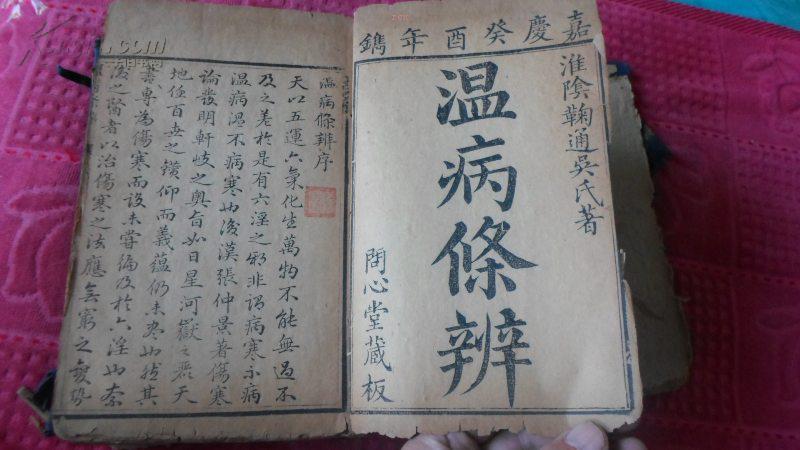 嘉慶癸酉年鐫
淮陰鞠通吳氏著
温病條辨
問心堂蔵板
温病條辨序
天以五運六氣化生萬物不能無過不
及之差於是有六淫之邪非謂病寒不病
温病温不病寒也後漢張仲景著傷寒
論發明軒岐之奥旨如日星河嶽之麗天
地任百世之鑽仰而義蕴仍未盡也然其
書專為傷寒而設未嘗徧及於六淫也奈
後之醫者以治傷寒之法應無窮之變勢